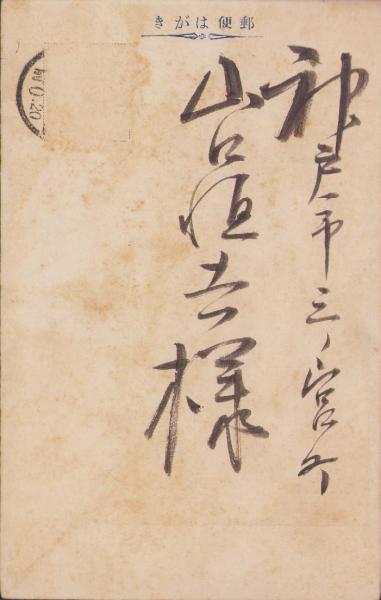 きがは便郵
神戸市三ノ宮町
山口恒吉様
0.20